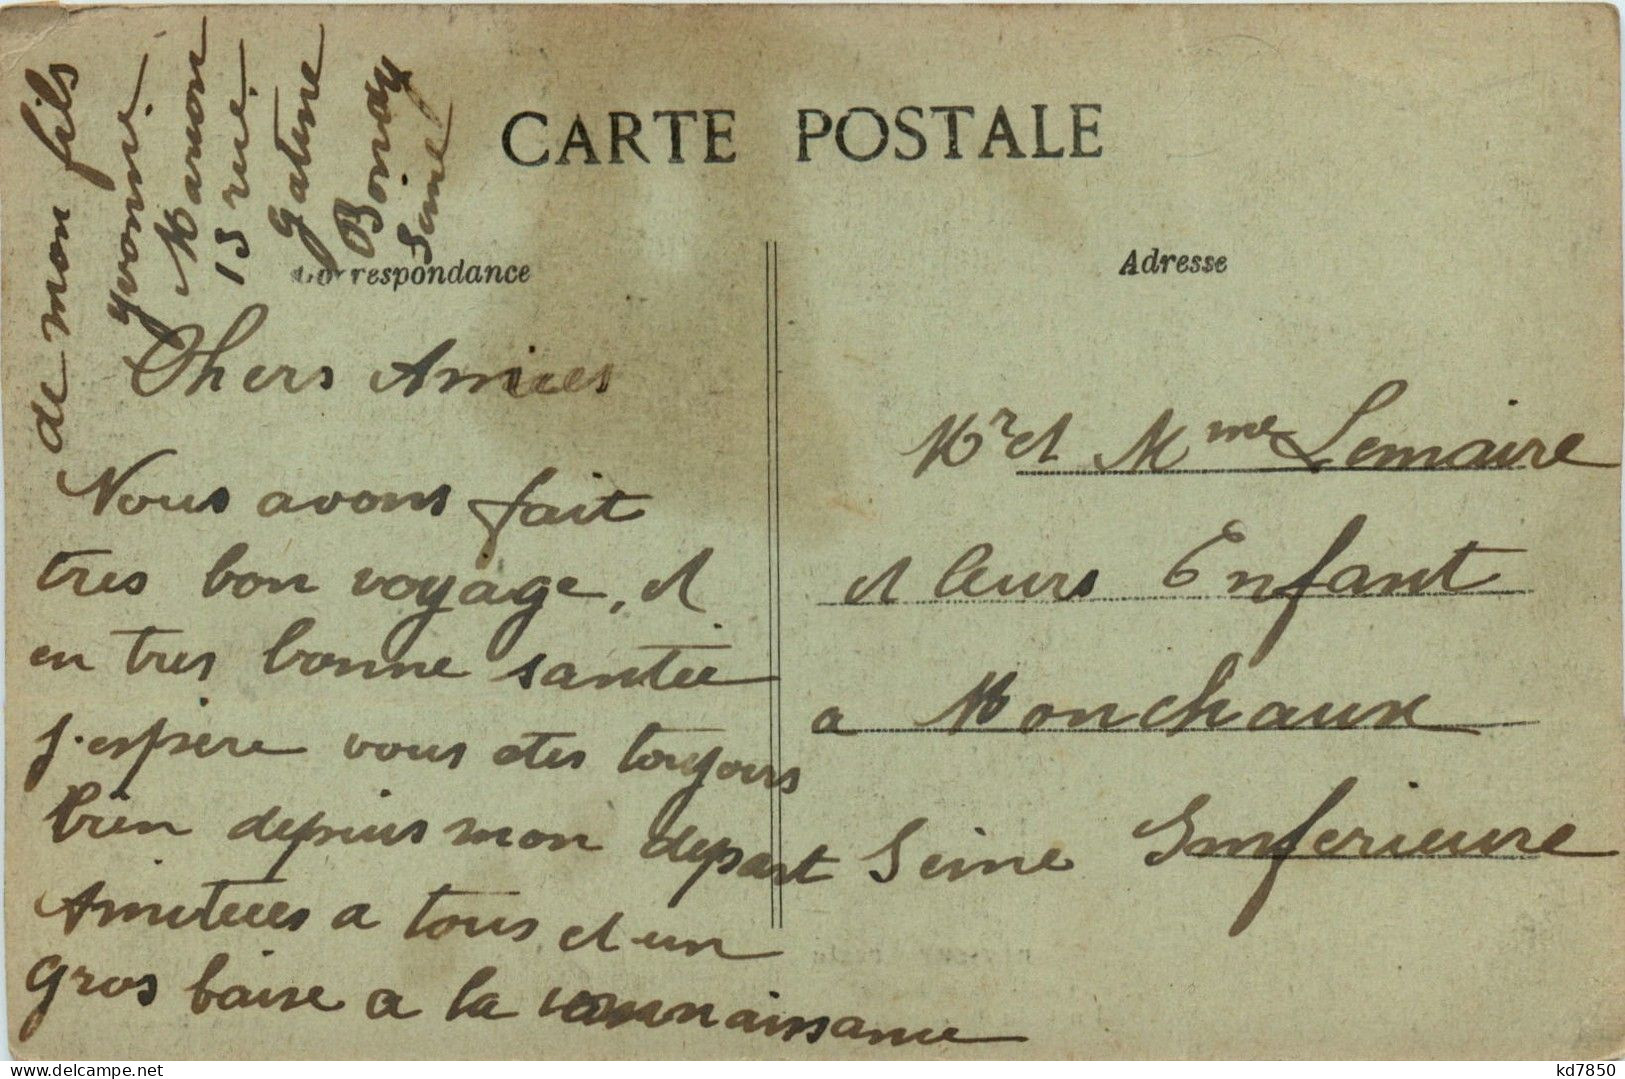 CARTE POSTALE
Correspondance
Adresse
Chers Amiees
Nous avons fait
tres bon voyage, et
en tres bonne santée
j'espère vous etes toujours
bien depuis mon depart
Amitiees a tous et un
gros baise a la connaissance
de mon fils
Yvonne
Marion
15 rue
Bonay
Seine
Mr et Mme Lemaire
et leurs Enfant
a Monchaux
Seine Inferieure
delcampe.net
kd7850